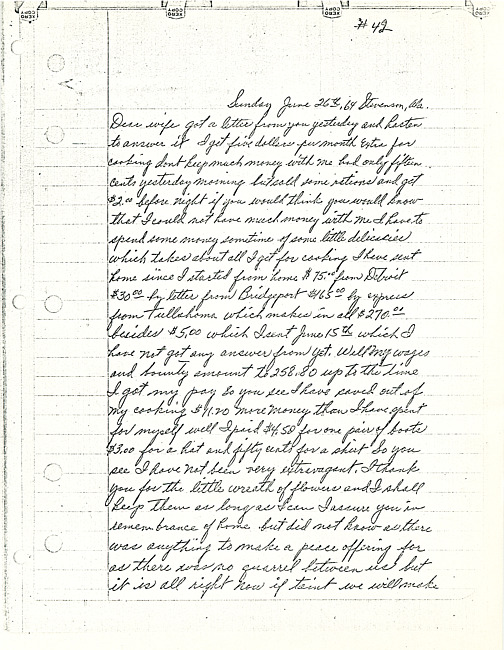 XERO COPY
XERO COPY
XERO COPY
XERO COPY
# 42
Sunday June 26th, 64 Stevenson, Ala.
Dear wife got a letter from you yesterday and hasten
to answer it I get five dollars per month extra for
cooking dont keep much money with me had only fifteen
cents yesterday morning but sold some rations and got
$2.00 before night if you would think you would know
that I could not have much money with me I have to
spend some money sometime of some little delicacies
which takes about all I get for cooking I have sent
home since I started from home $75.00 from Detroit
$30.00 by letter from Bridgeport $165.00 by express
from Tullahoma which makes in all $270.00
besides $5.00 which I sent June 15th which I
have not got any answer from yet. Well My wages
and bounty amount to 258.80 up to the time
I got my pay so you see I have saved out of
my cooking $11.20 more money than I have spent
for myself well I paid $4.50 for one pair of boots
$3.00 for a hat and fifty cents for a shirt So you
see I have not been very extravagent. I thank
you for the little wreath of flowers and I shall
keep them as long as I can I assure you in
remembrance of home but did not know as there
was anything to make a peace offering for
as there was no quarrel between us but
it is all right now if taint we will make